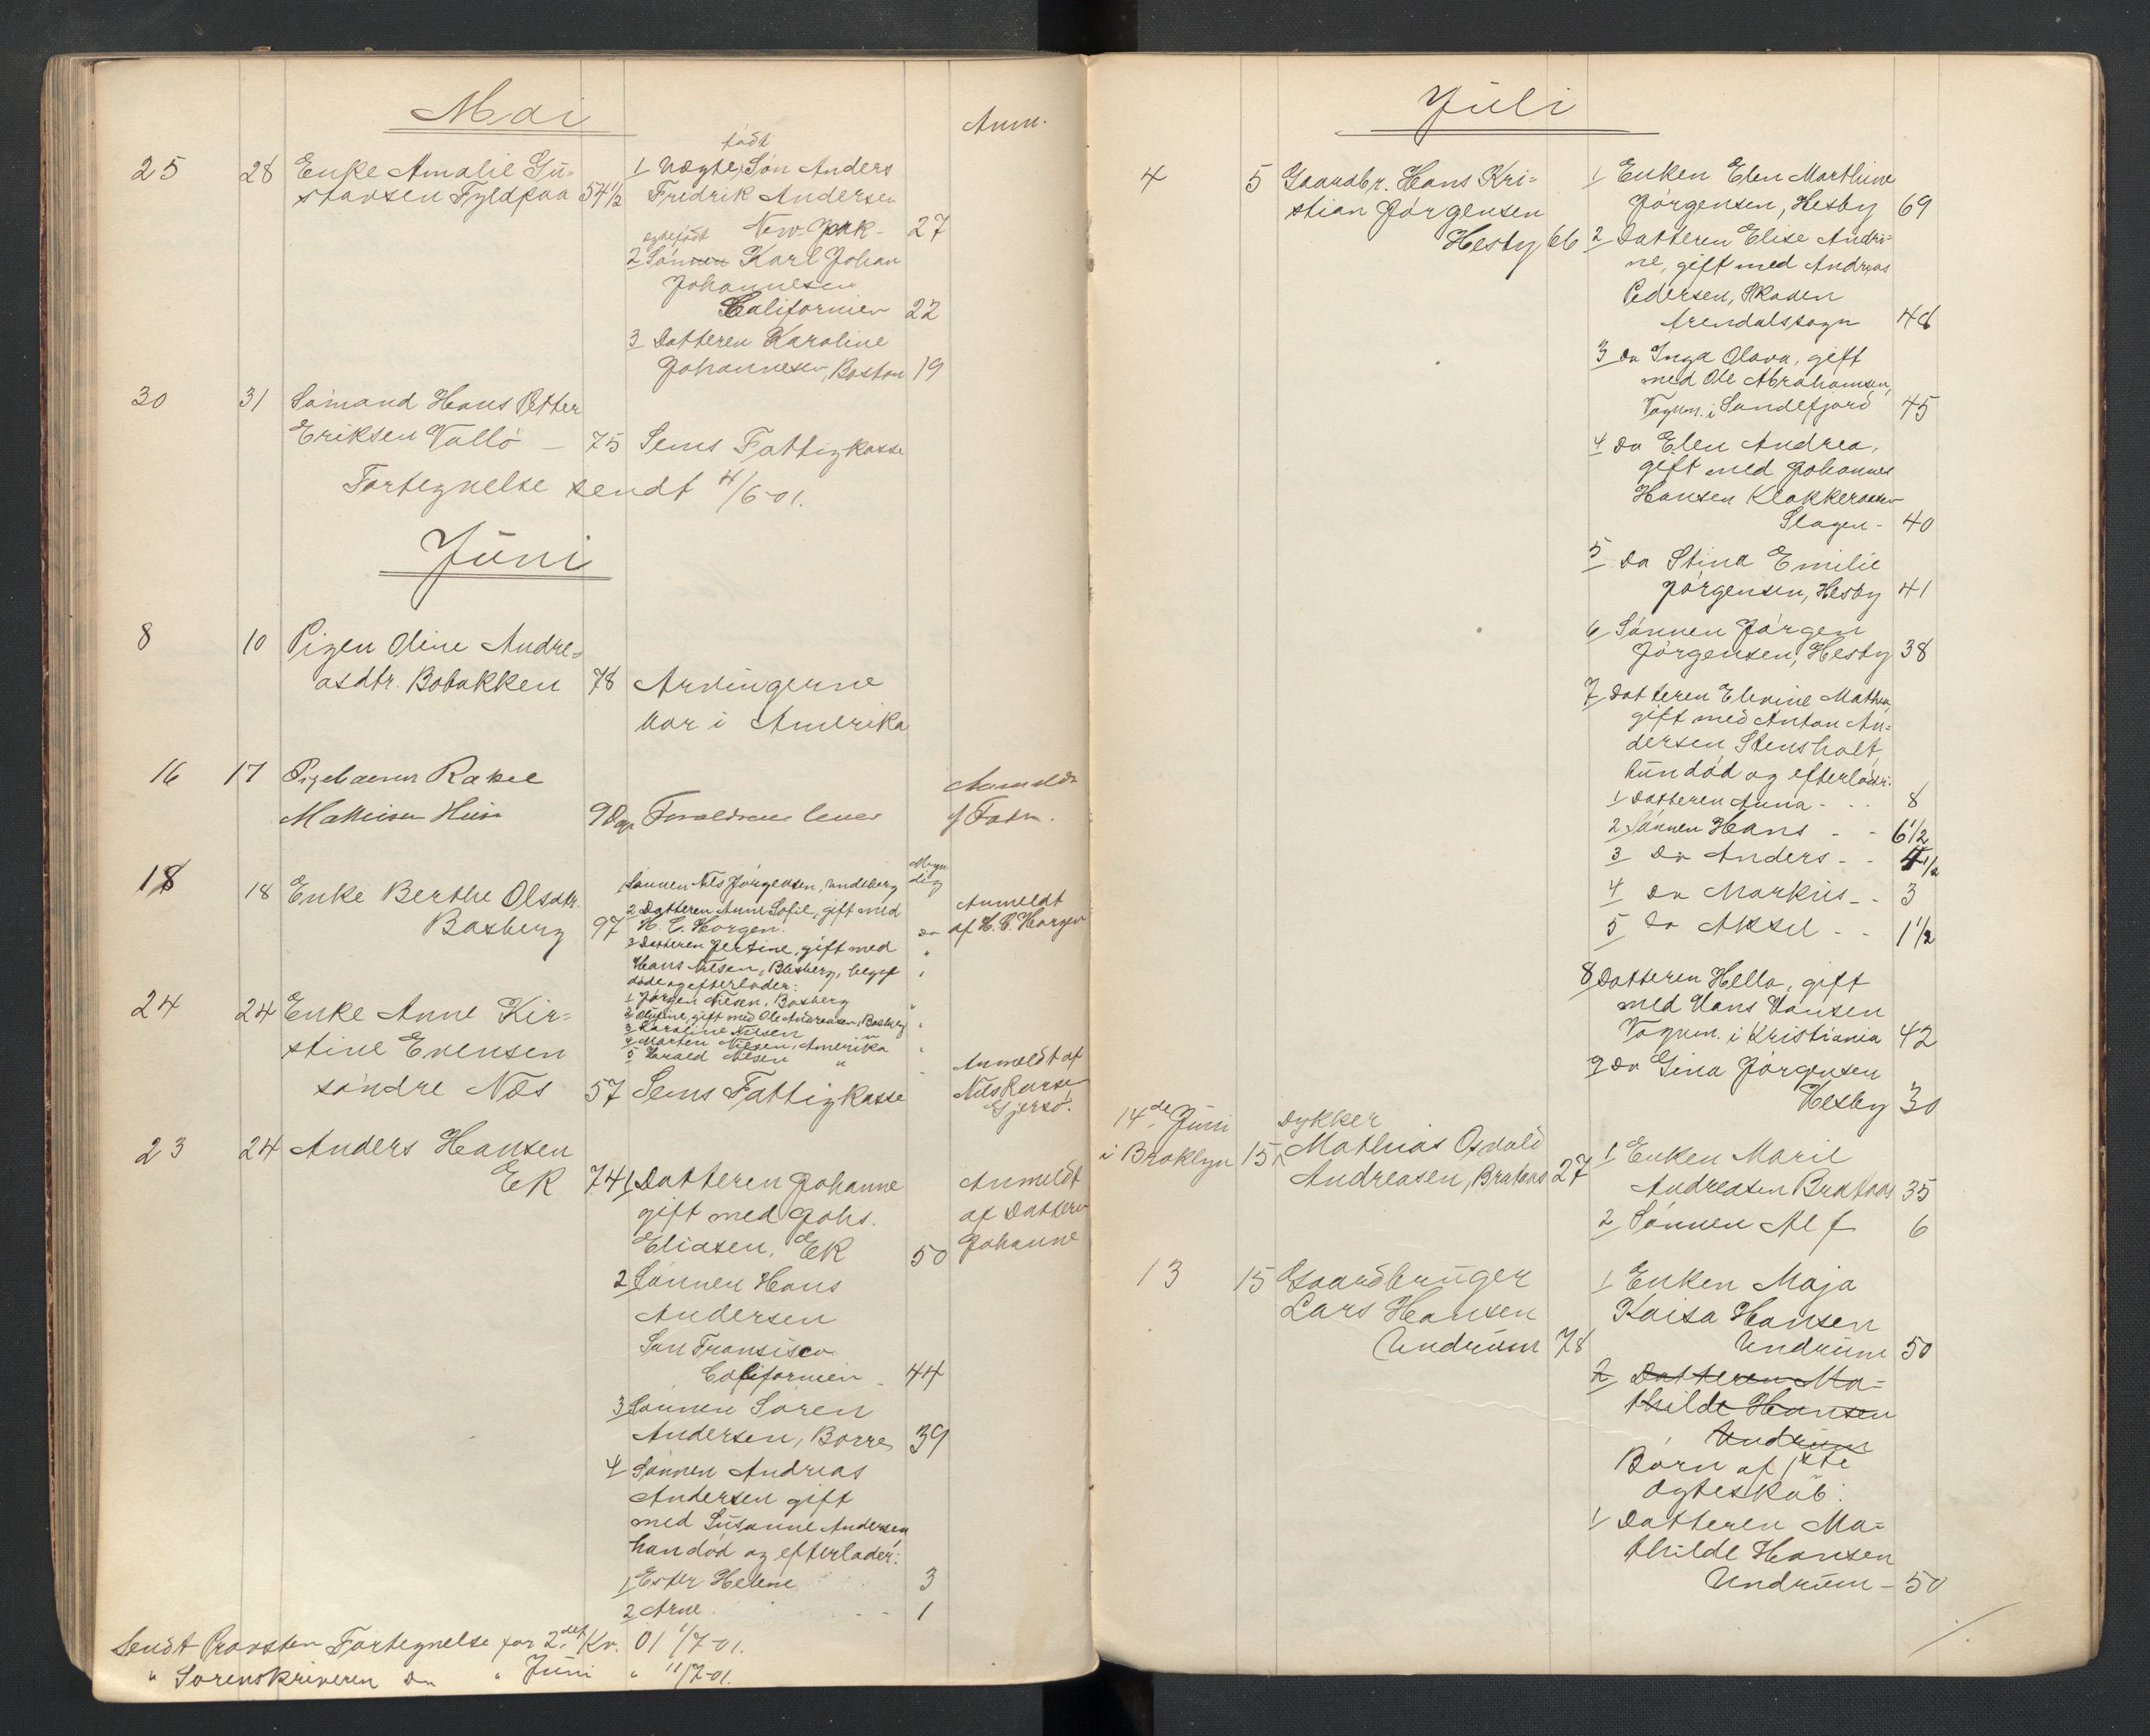 Mai
Anm.
25 28 Enke Amalie Gu-
stavsen Fyldpaa 54 1/2
født
1 Uægte Søn Anders
Fredrik Andersen
New-York - 27
ægtefødt
2 Sønnen Karl Johan
Johannesen
Californien 22
3 Datteren Karoline
Johannesen, Boston 19
30 31 Sømand Hans Petter
Eriksen Vallø - 75 Sems Fattigkasse
Fortegnelse sendt 4/6-01.
Juni
8 10 Pigen Oline Andre-
asdtr. Bobakken 78 Arvingerne
bor i Amerika
16 17 Pigebarnet Rakel
Mathisen 9 Dage Forældrene lever
Anmeldt
af Fadr.
18 18 Enke Berthe Olsdtr.
Basberg 97
1 Sønnen Nils Jørgensen, Undeberg Myndig
2 Datteren Anne Sofie, gift med
H. C. Horgen. do
3 Datteren Jertine, gift med "
Hans Nilsen, Basberg, begge "
døde og efterlader:
1 Jørgen Nilsen, Basberg "
2 Olufine, gift med Ole Andreasen, Basberg "
3 Karoline Nilsen "
4 Marten Nilsen, Amerika "
5 Harald Nilsen " "
Anmeldt
af H. C. Horgen
24 24 Enke Anne Kir-
stine Evensen
søndre Næs 57 Sems Fattigkasse
Anmeldt af
Nils
Gjersø.
23 24 Anders Hansen
Ek 74
1 Datteren Johanne
gift med Johs.
Eliasen, Ek 50
Anmeldt
af Datteren
Johanne
2 Sønnen Hans
Andersen
San Fransisco
Californien - 44
3 Sønnen Søren
Andersen, Borre, 39
4 Sønnen Andreas
Andersen gift
med Susanne Andersen,
han død og efterlader:
1 Ester Helene 3
2 Arne - - 1
Sendt Provsten Fortegnelse for 2det Kv. 01 1/7-01.
" Sorenskriveren Do " Juni " 11/7-01.
Juli
4 5 Gaardbr. Hans Kri-
stian Jørgensen
Hesby 66
1 Enken Elen Marthine
Jørgensen, Hesby 69
2 Datteren Elise Andri-
ne, gift med Andreas
Pedersen, Skaden
Arendalssogn 48
3 Do Inga Olava, gift
med Ole Abrahamsen,
Vognm. i Sandefjord 45
4 Do Elen Andrea,
gift med Johannes
Hansen Klakkeraasen
Slagen - 40
5 Do Stina Emilie
Jørgensen, Hesby 41
6 Sønnen Jørgen
Jørgensen, Hesby 38
7 Datteren Elevine Mathea,
gift med Anton An-
dersen Stensholt,
hun død og efterlader:
1 Datteren Anna - - - 8
2 Sønnen Hans - - 6 1/2
3 Do Anders - - 4 1/2
4 Do Markus - - 3
5 Do Aksel - - 1 1/2
8 Datteren Hella, gift
med Hans Hansen
Vognm. i Kristiania 42
9 Do Gina Jørgensen
Hesby 30
14de Juni
i Broklyn 15
Dykker
Mathias Osvald
Andreasen, Brataas 27
1 Enken Marie
Andreasen Brataas 35
2 Sønnen Alf 6
13 15 Gaardbruger
Lars Hansen
Undrum 78
1 Enken Maja
Kaisa Hansen
Undrum 50
2 Datteren Ma-
thilde Hansen
Undrum
Børn af 1ste
Ægteskab:
1 Datteren Ma-
thilde Hansen
Undrum - 50